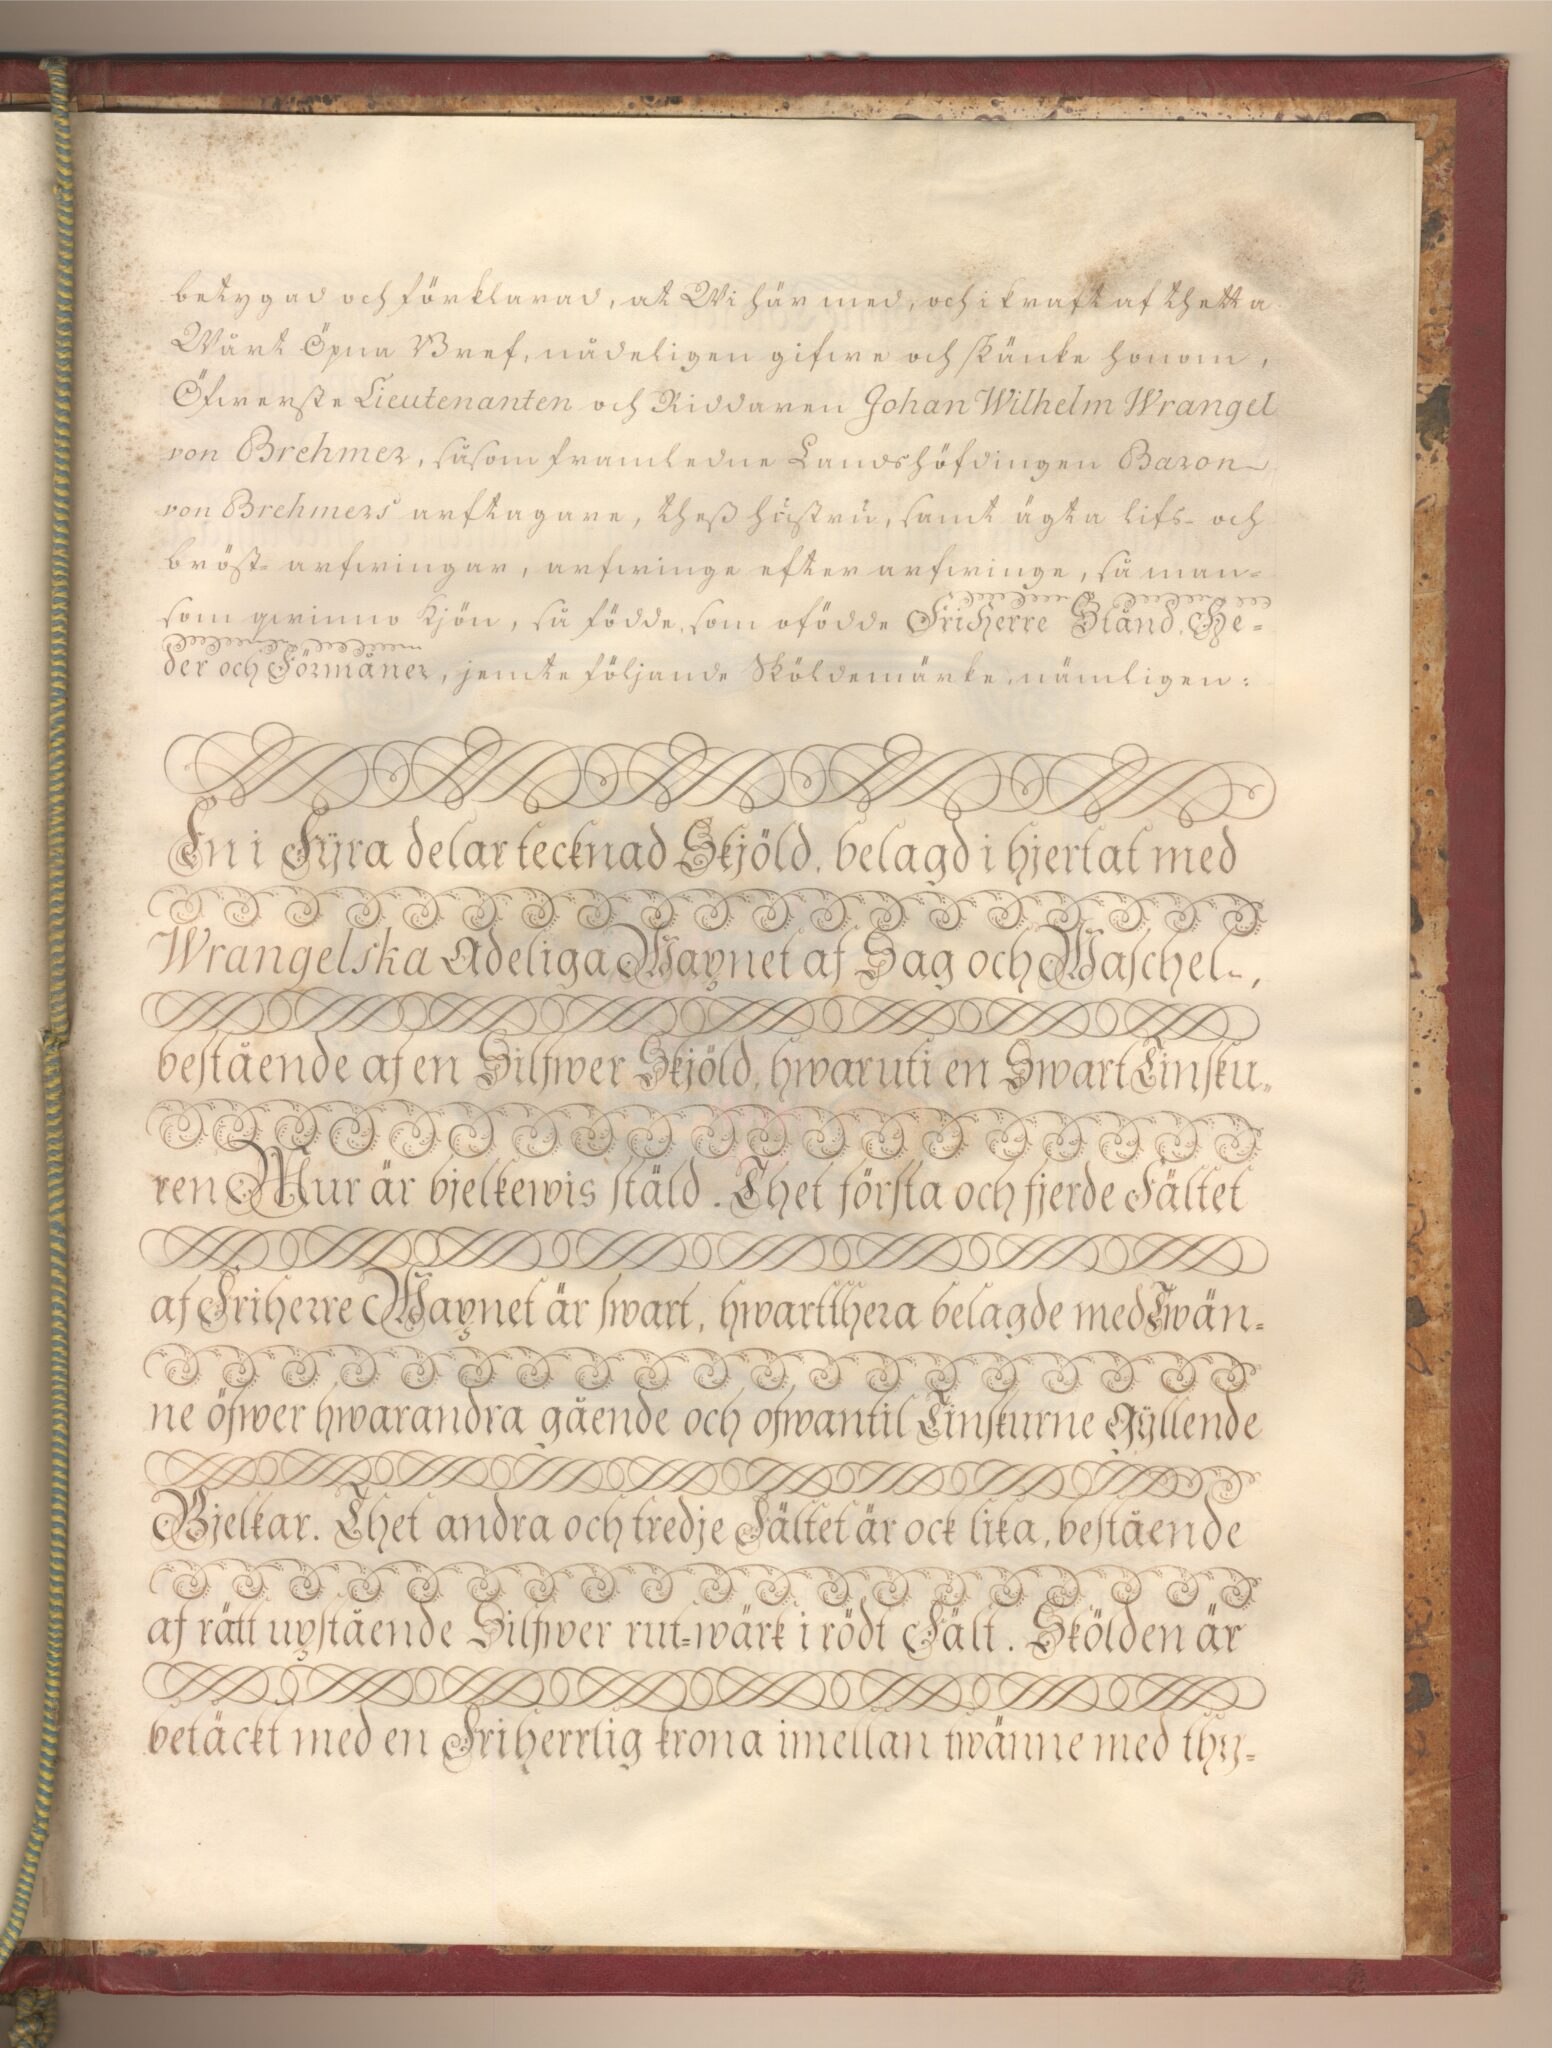 betygad och förklarad, at Wi här med, och i kraft af thetta
Wårt Öpna Bref, nådeligen gifwe och skänke honom,
Öfwerste Lieutenanten och Riddaren Johan Wilhelm Wrangel
von Brehmer, såsom framledne Landshöfdingen Baron
von Brehmers arftagare, theß hustru, samt ägta lifs- och
bröst-arfwingar, arfwinge efter arfwinge, så man-
som qwinno Kjön, så födde, som ofödde Friherre Stånd, He-
der och Förmåner, jemte följande Sköldemärke, nämligen:
En i Fyra delar tecknad Skjöld, belagd i hjertat med
Wrangelska Adeliga Wapnet af Sag och Waschel-,
bestående af en Silfwer Skjöld, hwaruti en Swart Tinsku-
ren Mur är bjelkewis stäld. Thet första och fjerde Fältet
af Friherre Wapnet är swart, hwartthera belagde med Twän-
ne öfwer hwarandra gående och ofwantil Tinskurne Gyllende
Bjelkar. Thet andra och tredje Fältet är ock lika, bestående
af rätt upstående Silfwer rut-wärk i rödt Fält. Skölden är
betäckt med en Friherrlig krona imellan twänne med thy-